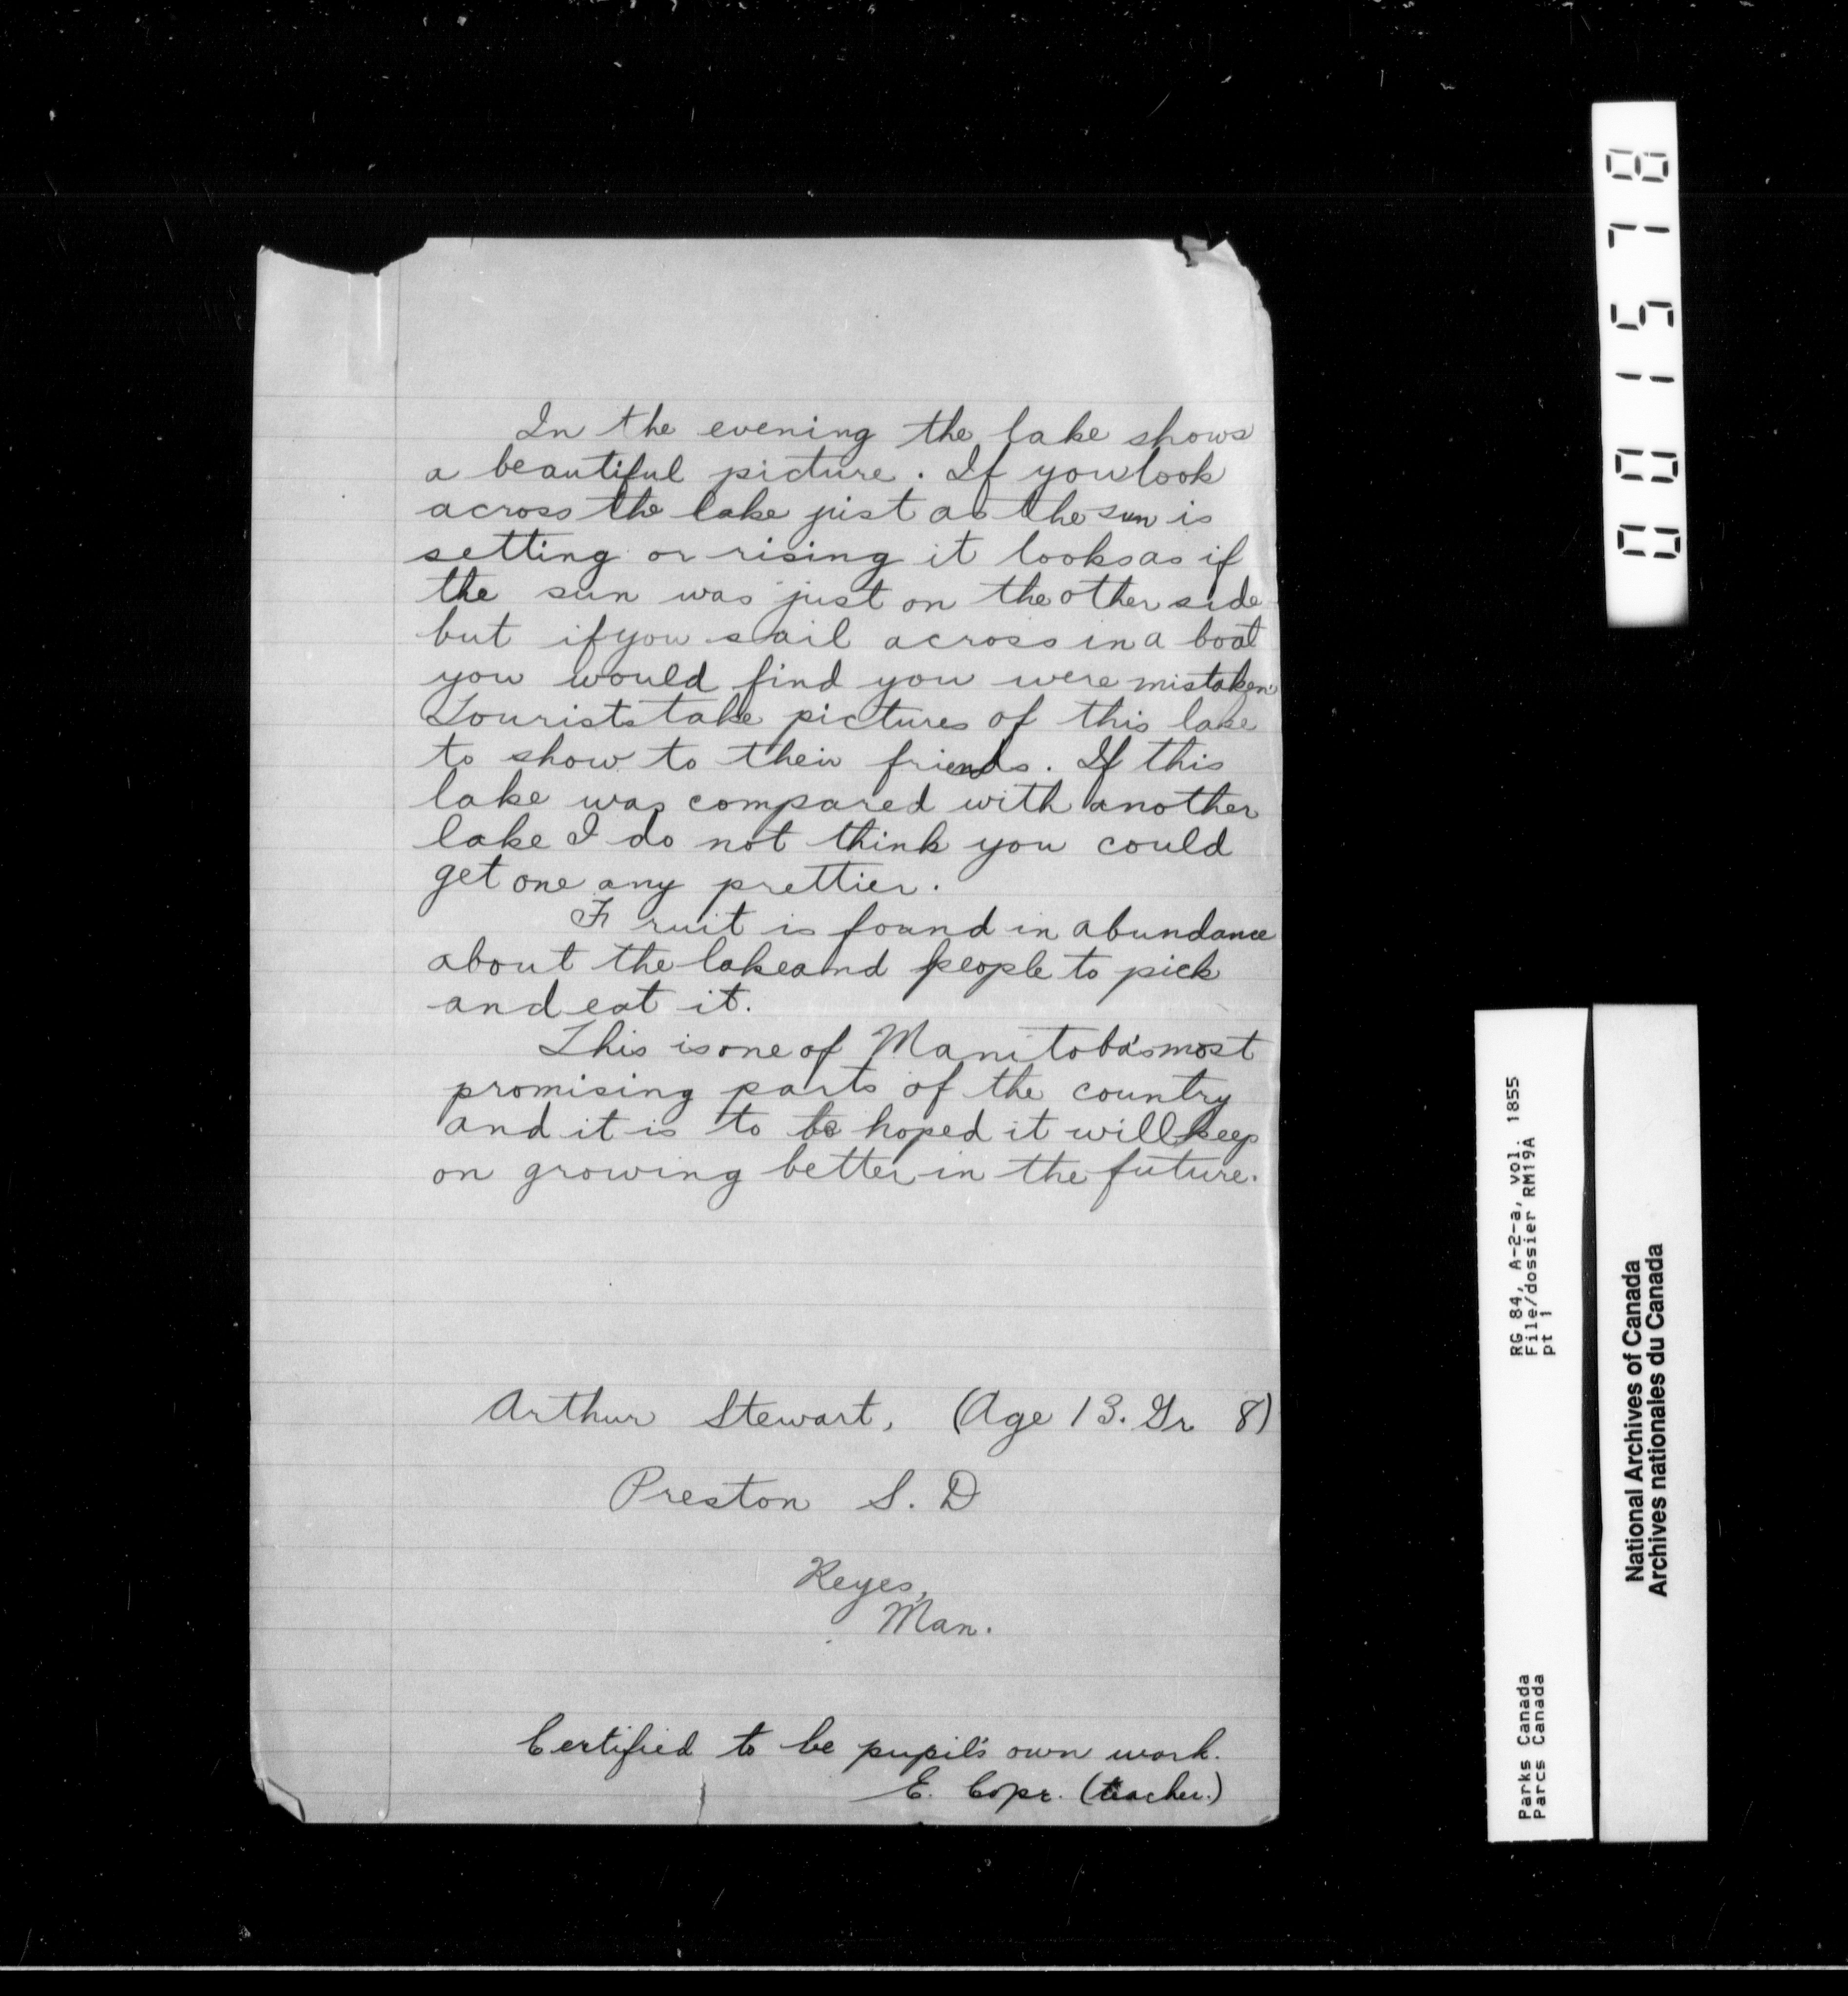 In the evening the lake shows
a beautiful picture. If you look
across the lake just as the sun is
setting or rising it looks as if
the sun was just on the other side
but if you sail across in a boat
you would find you were mistaken.
Tourists take pictures of this lake
to show to their friends. If this
lake was compared with another
lake I do not think you could
get one any prettier.
Fruit is found in abundance
about the lake and people to pick
and eat it.
This is one of Manitoba's most
promising parts of the country
and it is to be hoped it will keep
on growing better in the future.
Arthur Stewart, (Age 13. Gr 8)
Preston S. D
Keyes,
Man.
Certified to be pupil's own work.
E. Cope. (teacher.)
001578
RG 84, A-2-a, vol. 1855
File/dossier RM19A
pt 1
Parks Canada
Parcs Canada
National Archives of Canada
Archives nationales du Canada